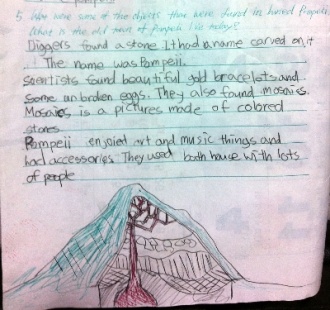 5. What were some of the objects that were found in buried Pompeii
What is the old town of Pompeii like today?
Diggers found a stone. It had a name carved on it
The name was Pompeii.
Scientists found beautiful gold bracelets and
some un broken eggs. They also found mosaics.
Mosaics is a pictures made of colored
stones
Pompeii enjoied art and music things and
had accessories. They used bath house with lots
of people